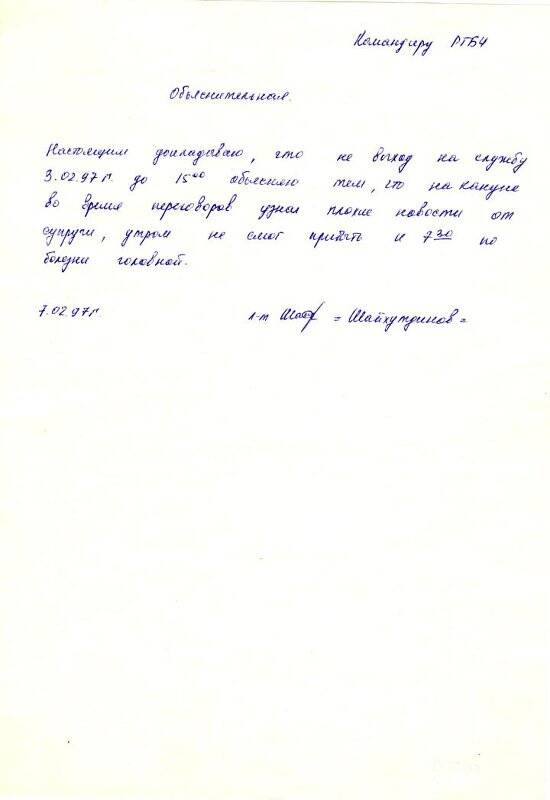 Командиру РТБЧ
Объяснительная.
Настоящим докладываю, что не выход на службу
3.02.97 г. до 15⁰⁰ объясняю тем, что на кануне
во время переговоров узнал плохие новости от
супруги, утром не смог прибыть к 7³⁰ по
болезни головной.
7.02.97 г. л-т = Шайхутдинов =